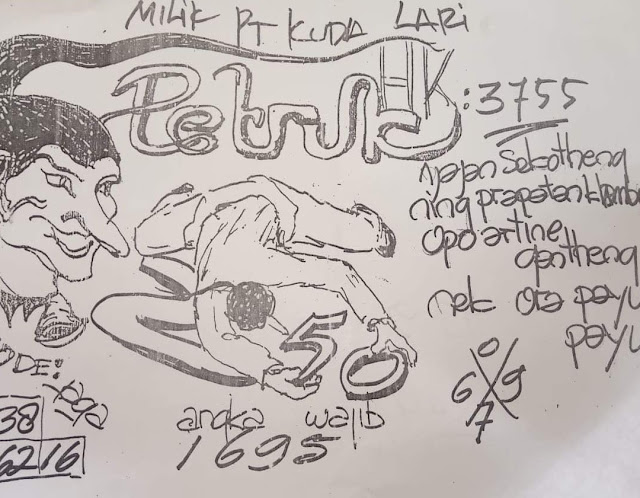 MILIK PT KUDA LARI
Petruk
HK: 3755
njajan Sekotheng
ning prapatan
opo artine
gantheng
nek ora payu
payu
50
ODE:
38
6216
angka wajib
1695
0
6 X 9
7